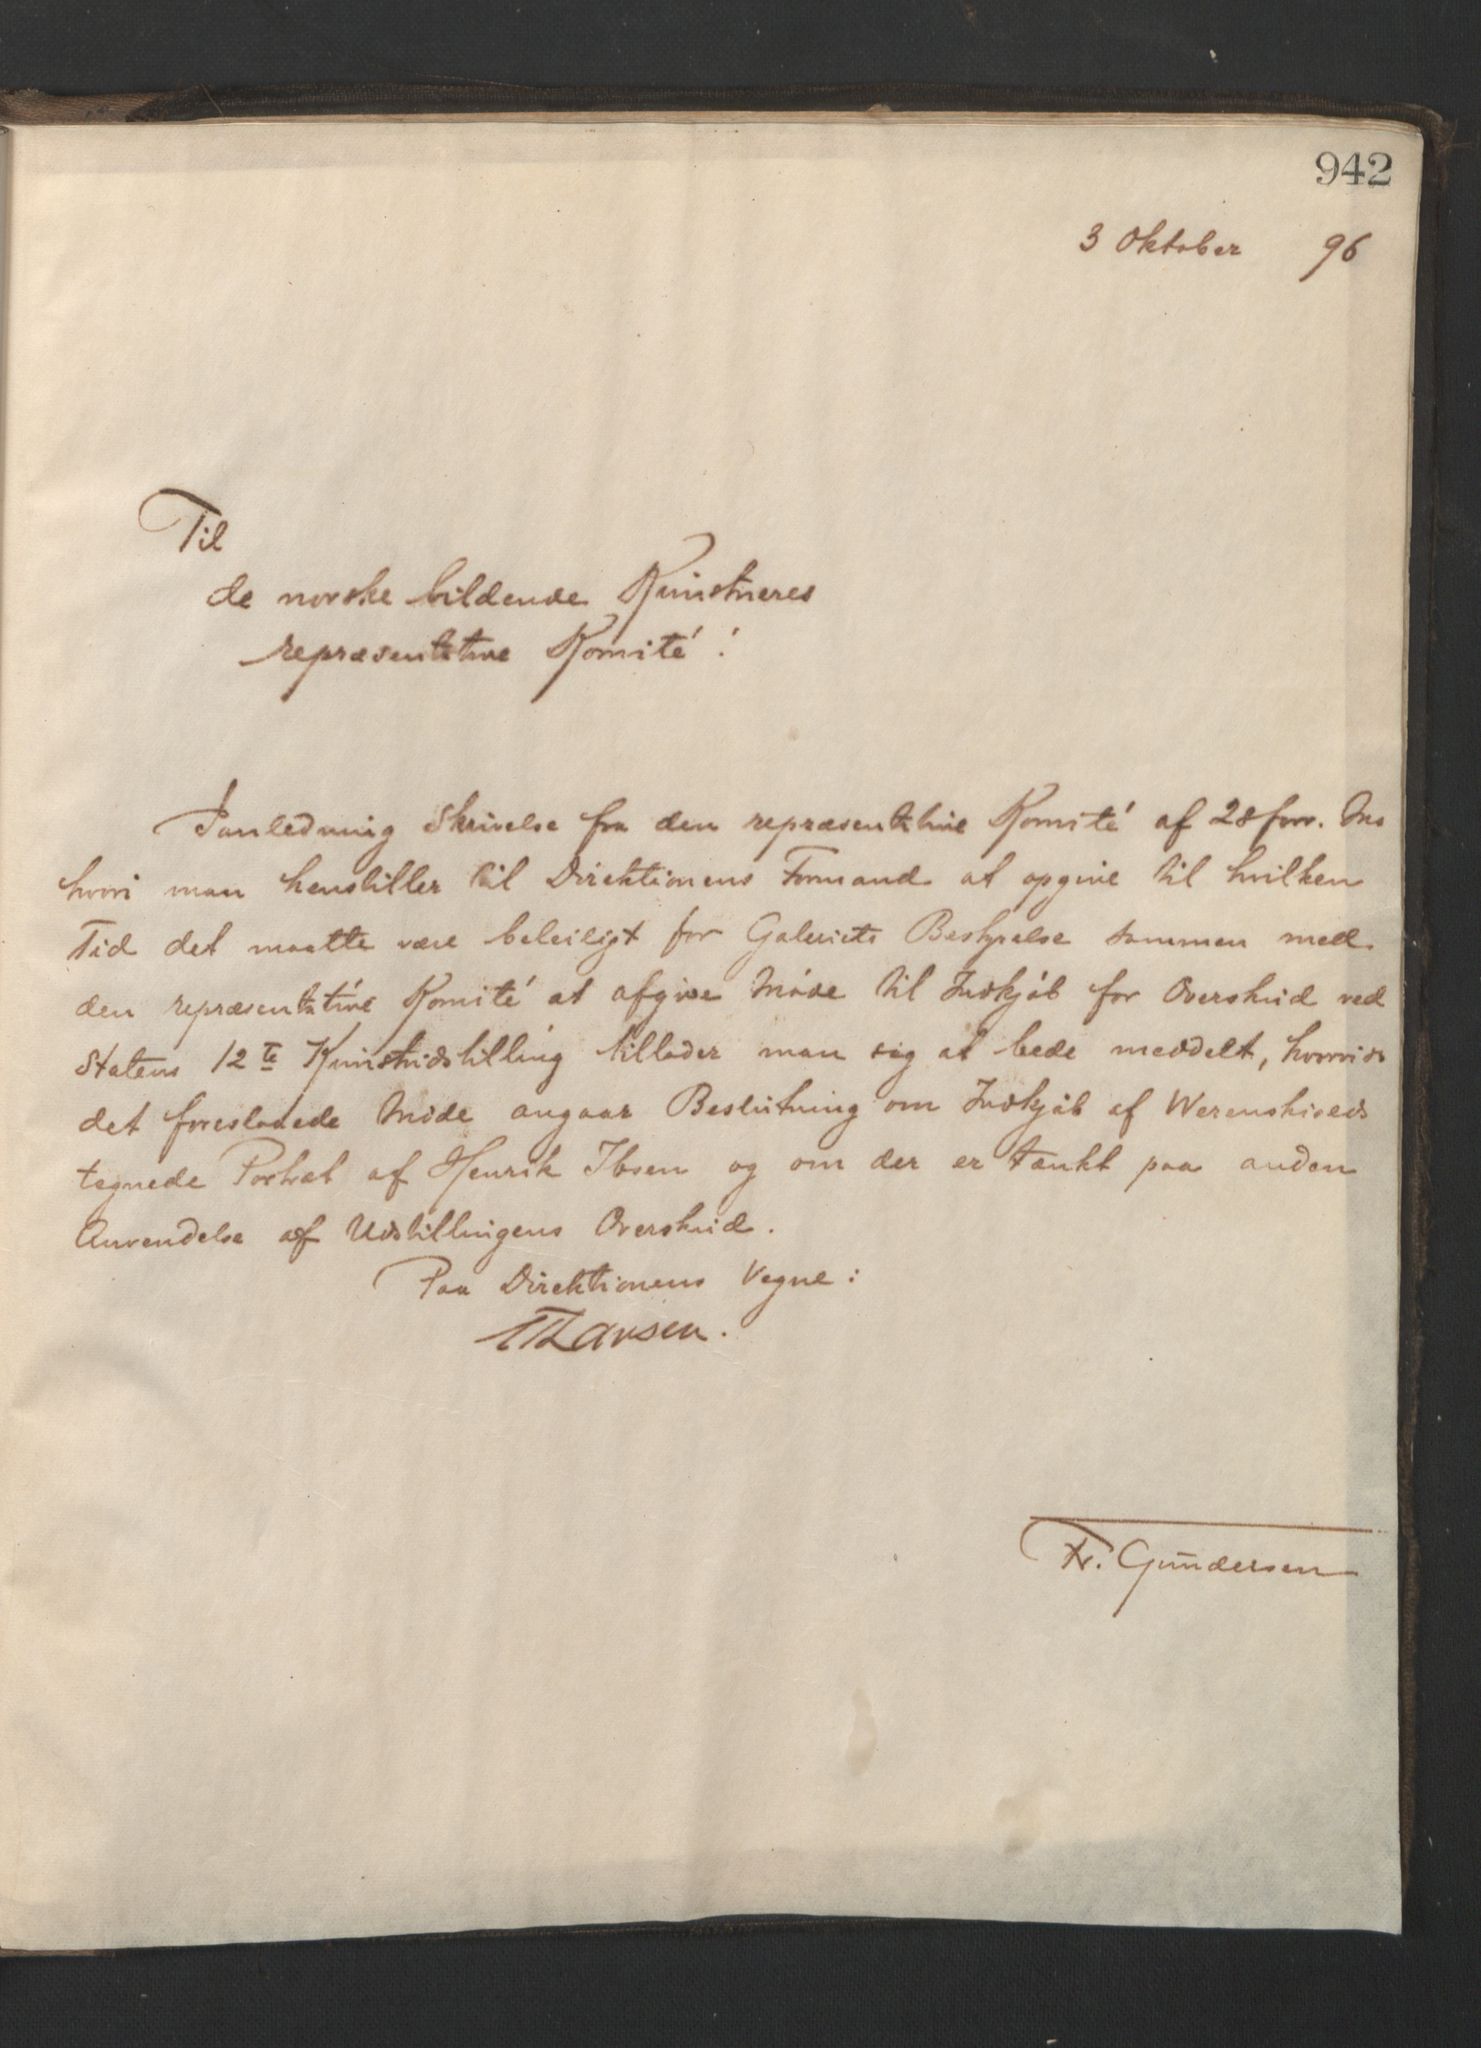 942
3 Oktober 96
Til
de norske bildende Kunstneres
repræsentative Komité!
Ianledning Skrivelse fra den repræsentative Komité af 28 forr. Ms
hvori man henstiller til Direktionens Formand at opgive til hvilken
Tid det maatte være beleiligt for Galeriets Bestyrelse sammen med
den repræsentative Komité at afgive Møde til Indkjøb for Overskud ved
Statens 12te Kunstudstilling tillader man sig at bede meddelt, hvorvidt
det foreslaaede Møde angaar Beslutning om Indkjøb af Werenskiolds
tegnede Portræt af Henrik Ibsen og om der er tænkt paa anden
Anvendelse af Udstillingens Overskud.
Paa Direktionens Vegne:
Larsen.
Fr. Gundersen